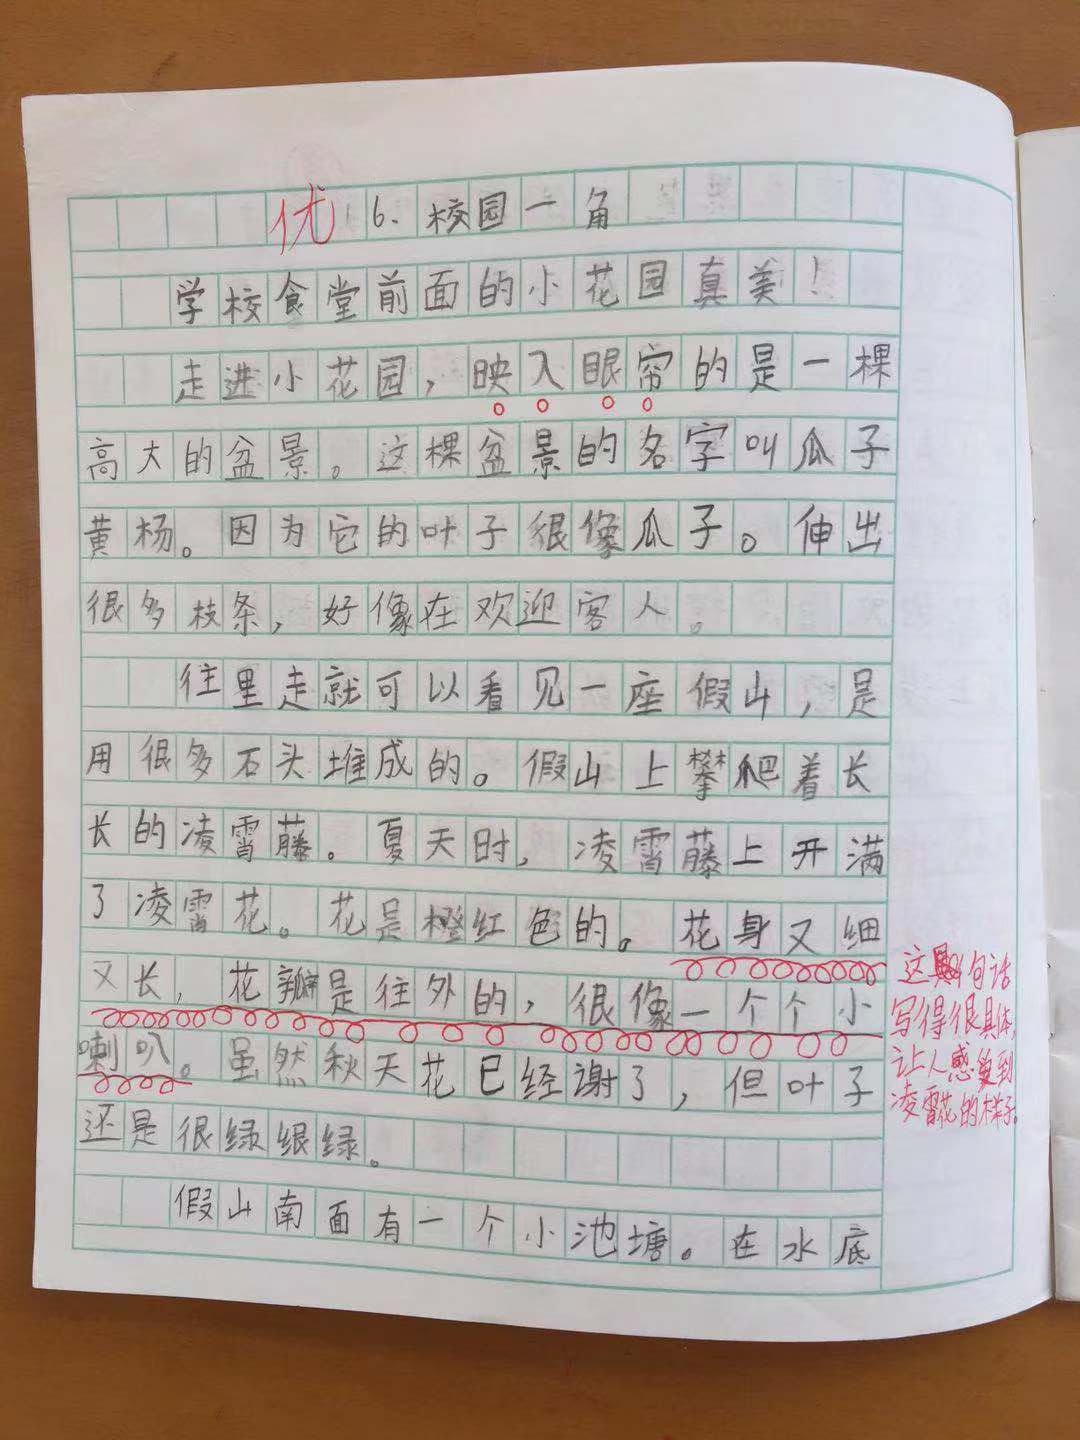 优 6.校园一角
学校食堂前面的小花园真美!
走进小花园,映入眼帘的是一棵
高大的盆景。这棵盆景的名字叫瓜子
黄杨。因为它的叶子很像瓜子。伸出
很多枝条,好像在欢迎客人。
往里走就可以看见一座假山,是
用很多石头堆成的。假山上攀爬着长
长的凌霄藤。夏天时,凌霄藤上开满
了凌霄花。花是橙红色的。花身又细
又长,花瓣是往外的,很像一个个小
喇叭。虽然秋天花已经谢了,但叶子
还是很绿很绿。
假山南面有一个小池塘。在水底
这句话
写得很具体,
让人感受到
凌霄花的样子。